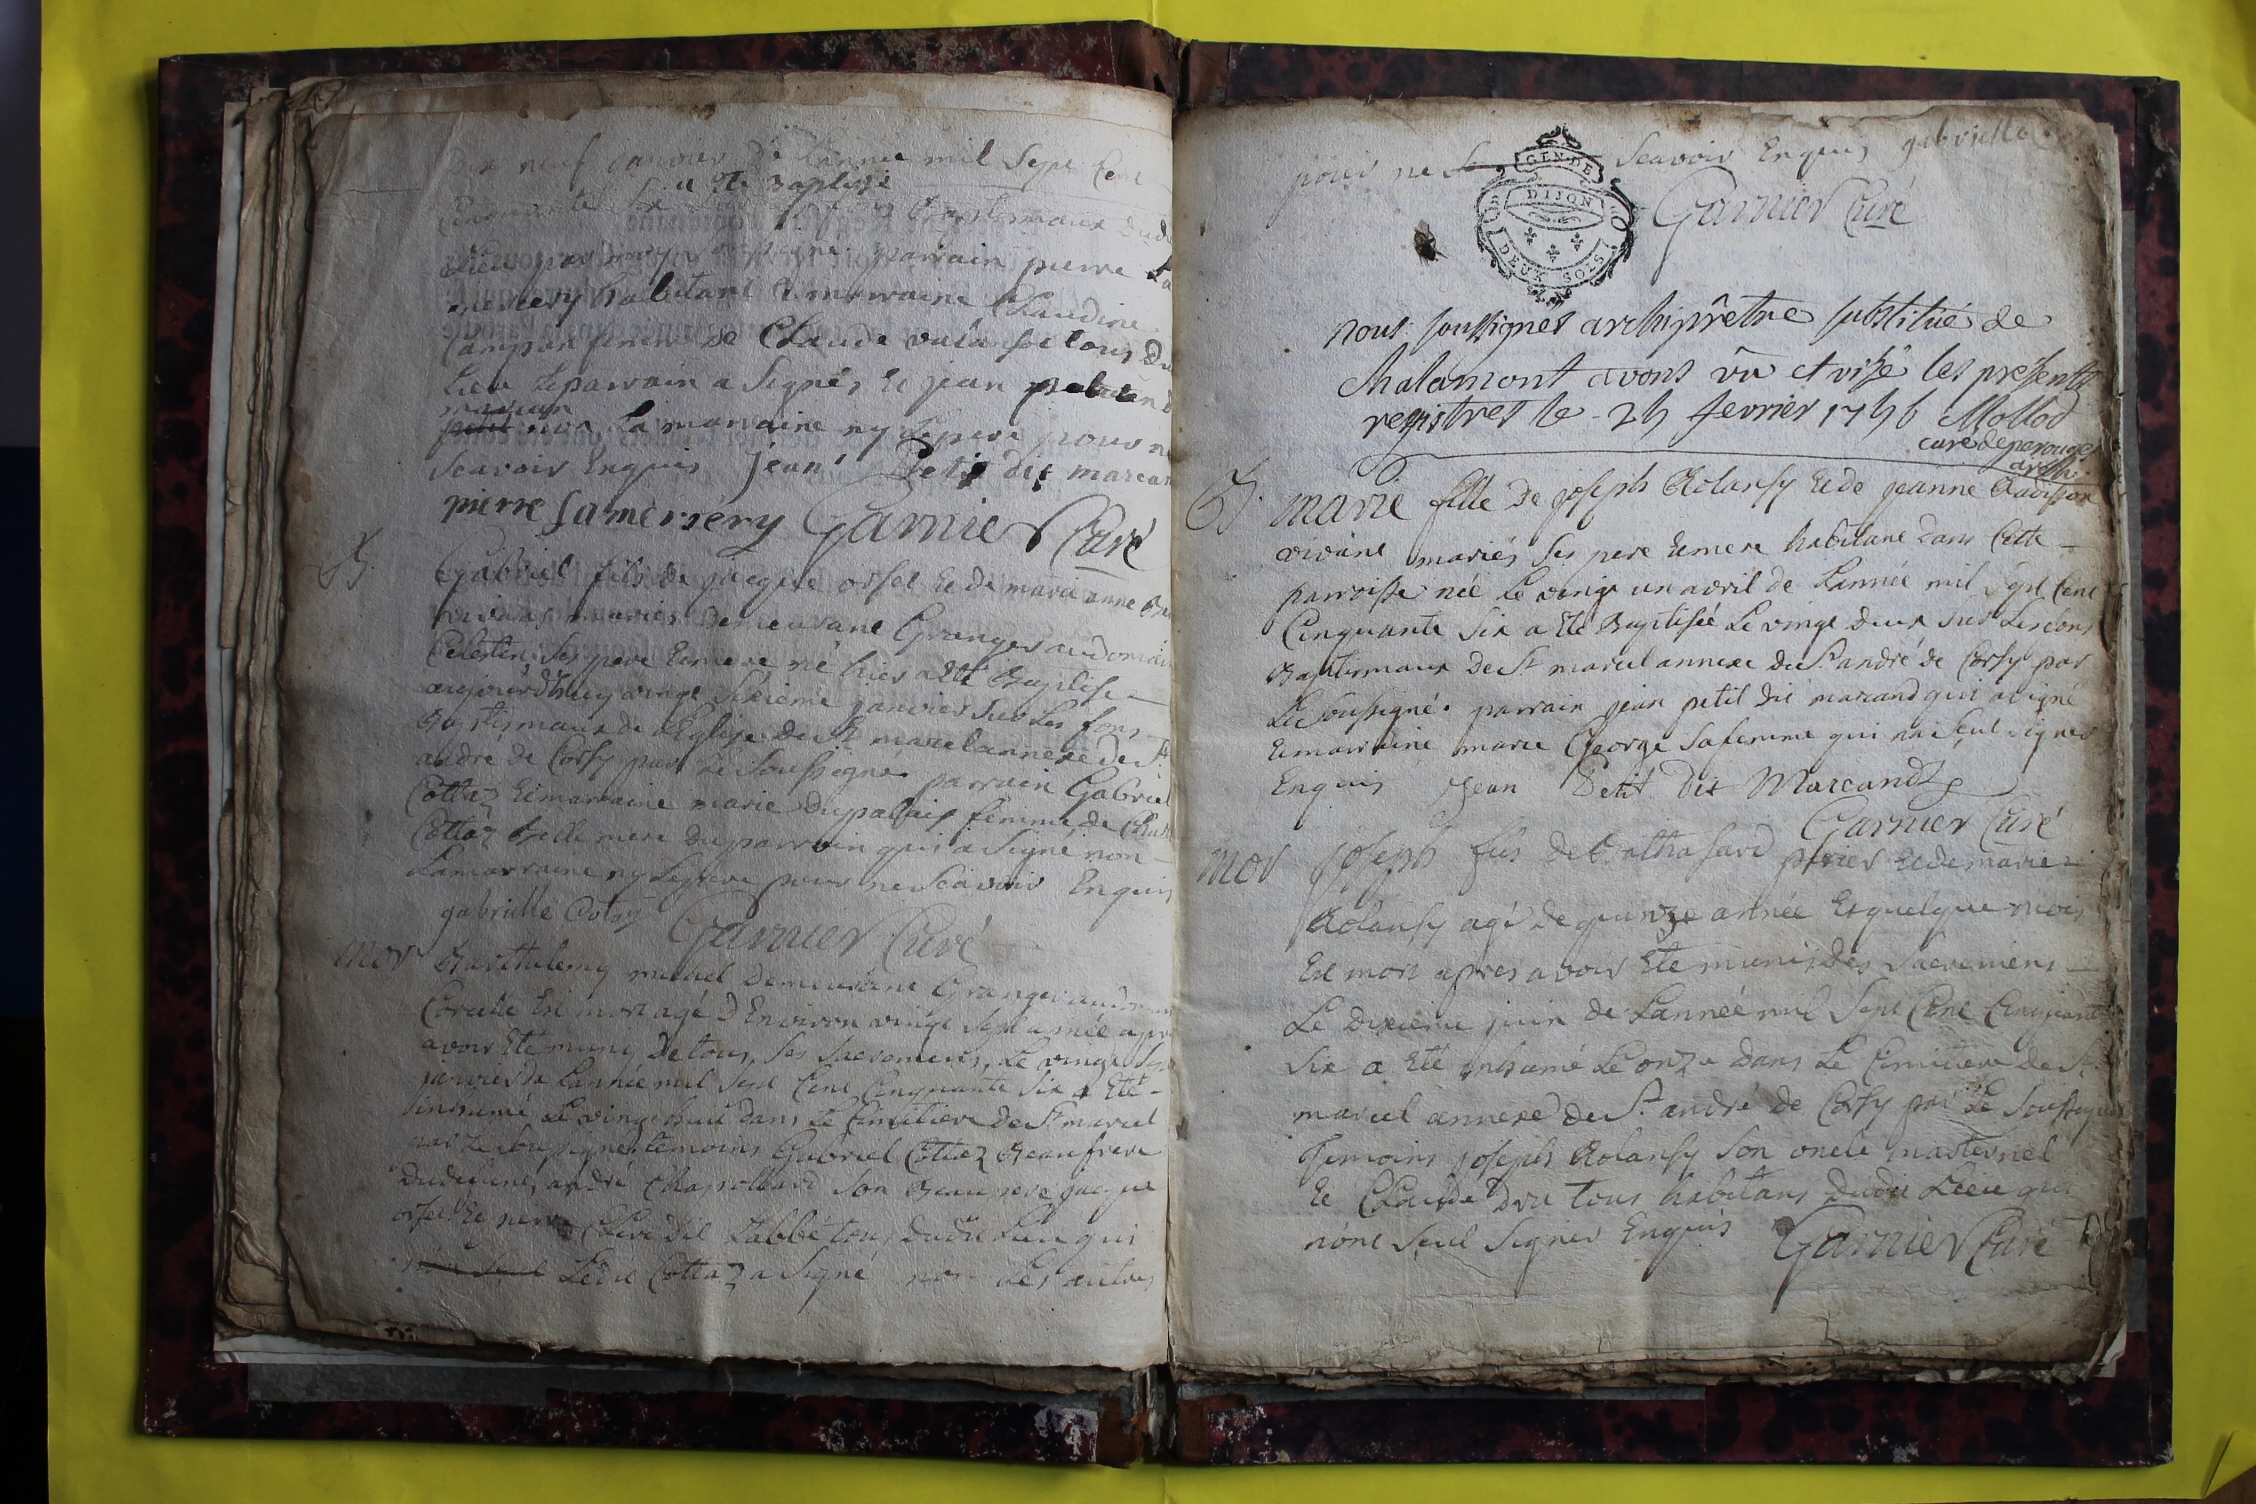 Dix neuf janvier de Lannee mil Sept Cent
a Ete Baptisé
Cinquante Six Baptismaux dudit
Lieu par moy parrain pierre La
mercery habitant & marraine Claudine
femme de Claude tous du
Lieu Leparrain a Signés Ec jean
non La marraine ny Lepere pour ne
Scavoir Enquis jean Petit dit marcan
pierre Lamersery Garnier Curé
B. Gabriel fils de jacque orsel Ec de marie anne
vivans mariés demeurans Granger au domaine
Celestin Ses pere Ec mere né hier a Eté Baptisé
aujourd'huy vingt Sixieme janvier Sur Les fons
Baptismaux de l'Eglise de St marcel annexe de St
andré de Corsy par Le Soussigné parrain Gabriel
Cottaz Ec marraine marie dupalais femme de
Cottaz Belle mere du parrain qui a Signé non
Lamarraine ny Lepere pour ne Scavoir Enquis
gabrielle Cotaz Garnier Curé
mor Barthelemy demeurant Granger au
Est mort agé D'Environ vingt Sept année apres
avoir Eté muny de tous Ses Sacremens, Le vingt Sept
janvier de Lannée mil Sept Cent Cinquante Six a Eté
inhumé Le vingt huit dans Le Cimitiere de St marcel
par Le Soussigné temoins Gabriel Cottaz Beaufrere
andré Chapolard Son Beau pere jacque
orsel Ec pierre dit Labbé tous dudit Lieu qui
Ledit Cottaz a Signé non Les autres
pour ne Scavoir Enquis gabrielle
GEN. DE
DIJON
DEUX SOLS
Garnier Curé
nous soussignés archiprêtre substitué de
Chalamont avons vû et visé les présents
registres le 25 fevrier 1756 Mollod
curé de perouges
archi.
B. marie fille de joseph Rolansy Ec de jeanne
vivans mariés Ses pere Ec mere habitans dans Cette
parroisse née Le vingt un avril de Lannée mil Sept Cent
Cinquante Six a Eté Baptisée Le vingt deux Sur Les fons
Baptismaux de St marcel annexe de St andré de Corsy par
Le Soussigné. parrain jean petit dit marcand qui a signé
Ec marraine marie George Sa femme qui na Seut Signer
Enquis Jean Petit Dit Marcand
Garnier Curé
mor joseph fils de Balthasard perier Ec de marie
Rolansy agé de quinze année Et quelque mois
Est mort apres avoir Eté munis des Sacremens
Le dixieme juin de Lannée mil Sept Cent Cinquante
Six a Eté inhumé Le onze dans Le Cimitiere de St
marcel annexe de St andré de Corsy par Le Soussigné
Temoins joseph Rolansy Son oncle maternel
Ec Claude Dru tous habitans dudit Lieu qui
n'ont Seut Signer Enquis Garnier Curé